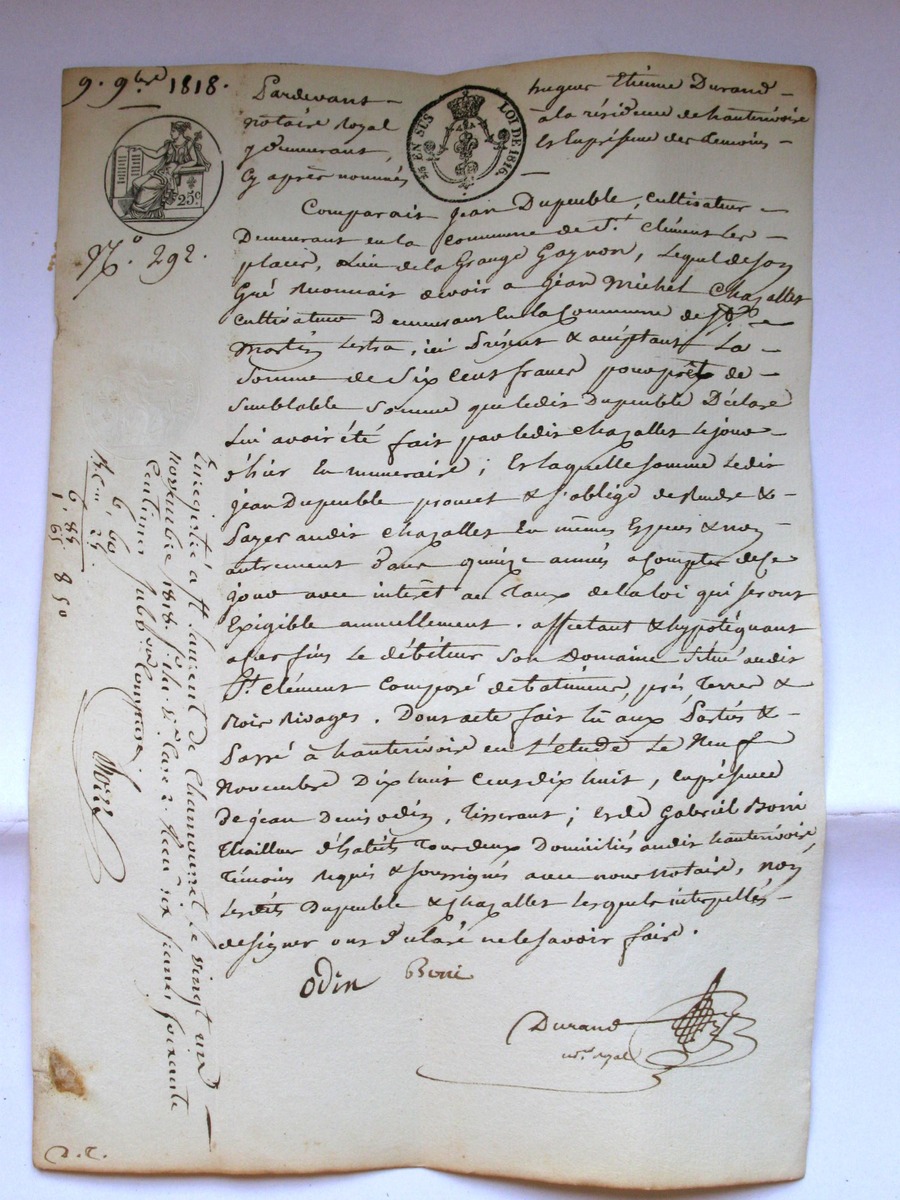 9. 9bre 1818.
25c
N.º 292.
EN SUS
LOI DE 1816.
Pardevant hugues Etienne Durand
notaire Royal à la résidence de hauterivoire
y demeurant, Et En présence des temoins
Cy après nommés
Comparait Jean Dupeuble, cultivateur
Demeurant en la Commune de St. Clément les
places, Lieu de la Grange Gagnon, Lequel de son
Gré Reconnait devoir a Jean Michel Chazallet
Cultivateur Demeurant En la Commune de St.
Martin Lestra, ici Présent & acceptant La
Somme de Six Cent francs pour prêt de
Semblable Somme que ledit Dupeuble Déclare
Lui avoir été fait par ledit chazallet le jour
d'hier En numeraire ; Et laquelle somme ledit
Jean Dupeuble promet & s'oblige de Rendre &
Payer audit chazallet En mêmes Espèces & non
autrement Dans quinze années a Compter de Ce
jour avec intérêt au Taux de la loi qui seront
Exigible annuellement. affectant & hypotéquant
a ces fins Le débiteur Son Domaine Situé audit
St. Clément Composé de batiments, prés, Terres &
Dont acte fait lû aux Parties &
Passé à hauterivoire en L'étude Le Neuf
Novembre Dix huit Cent dix huit, en présence
de jean Denis odin, Tisserant ; Et de Gabriel Boni
Thailleur d'habits Tous deux Domiciliés audit hauterivoire
Témoins Requis & soussignés avec nous notaire, non
Lesdits Dupeuble & Chazallet Lesquels interpellés
de signer ont Déclaré ne le savoir faire.
odin Boni
Durand
nre. royal
Enregistré à St. Laurent de Chamousset le vingt un
Novembre 1818. Reçu six francs soixante
Centimes
6, 60
D. T.